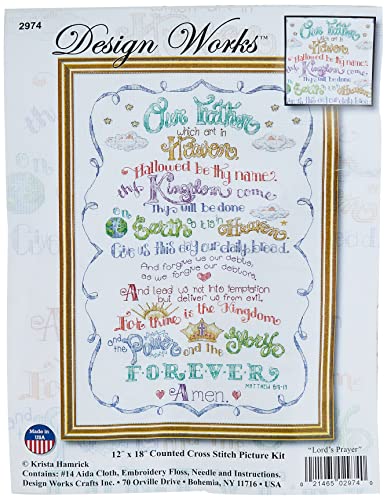 2974
Design Works™
Our Father
which art in
Heaven
Hallowed be thy name.
thy Kingdom come
Thy will be done
on Earth as it is in Heaven.
Give us this day our daily bread.
And forgive us our debts,
as we forgive our debtors.
And lead us not into temptation
but deliver us from evil.
For thine is the Kingdom
and the Power and the Glory
FOREVER
MATTHEW 6:9-13
Amen.
Our Father
which art in
Heaven
Hallowed be thy name.
Kingdom
Thy will be done
Earth as it is in Heaven
us this day our daily
Made in
USA
12" x 18" Counted Cross Stitch Picture Kit
© Krista Hamrick
Contains: #14 Aida Cloth, Embroidery Floss, Needle and Instructions.
Design Works Crafts Inc. • 70 Orville Drive • Bohemia, NY 11716 • USA
"Lord's Prayer"
0 21465 02974 9